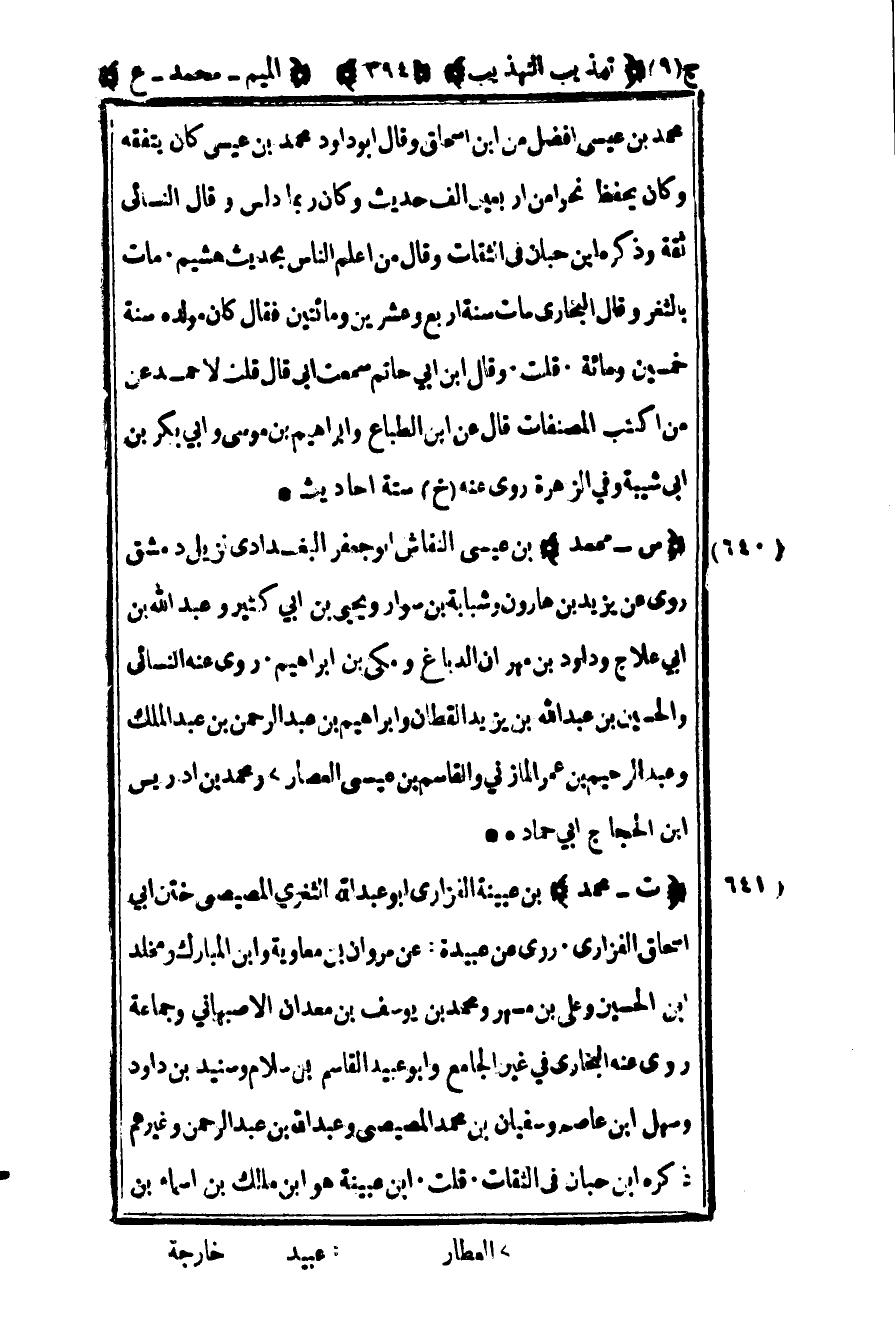 ج(٩) ﴿ تهذيب التهذيب ﴾ ﴿ ٣٩٤ ﴾ ﴿ الميم ـ محمد ـ ع ﴾
محمد بن عيسى افضل من ابن اسحاق وقال ابو داود محمد بن عيسى كان يتفقه
وكان يحفظ نحوا من اربعين الف حديث وكان ربما دلس وقال النسائى
ثقة وذكره ابن حبان فى الثقات وقال من اعلم الناس بحديث هشيم . مات
بالثغر وقال البخارى مات سنة اربع وعشرين ومائتين فقال كان مولده سنة
خمسين ومائة . قلت . وقال ابن ابي حاتم سمعت ابى قال قلت لاحمد عن
من اكتب المصنفات قال عن ابن الطباع وابراهيم بن موسى وابي بكر بن
ابى شيبة وفي الزهرة روى عنه (خ) ستة احاديث •
(٦٤٠) ﴿ س ـ محمد ﴾ بن عيسى النقاش ابو جعفر البغدادى نزيل دمشق
روى عن يزيد بن هارون وشبابة بن سوار ويحيى بن ابي كثير وعبد الله بن
ابي علاج وداود بن مهران الدباغ ومكى بن ابراهيم . روى عنه النسائى
والحسين بن عبدالله بن يزيد القطان وابراهيم بن عبدالرحمن بن عبدالملك
وعبد الرحيم بن عمر المازني والقاسم بن عيسى العصار > ومحمد بن ادريس
ابن الحجاج ابي حماد ••
(٦٤١ ﴿ ت ـ محمد ﴾ بن عيينة الفزارى ابو عبدالله الثغري المصيصى ختن ابي
اسحاق الفزارى . روى عن عبيدة : عن مروان بن معاوية وابن المبارك ومخلد
ابن الحسين وعلى بن مسهر ومحمد بن يوسف بن معدان الاصبهاني وجماعة
روى عنه البخارى في غير الجامع وابو عبيد القاسم بن سلام وسنيد بن داود
وسهل ابن عاصم وسفيان بن محمد المصيصى وعبدالله بن عبدالرحمن وغيرهم
ذكره ابن حبان فى الثقات . قلت . ابن عيينة هو ابن مالك بن اسماء بن
> العطار : عبيد خارجة